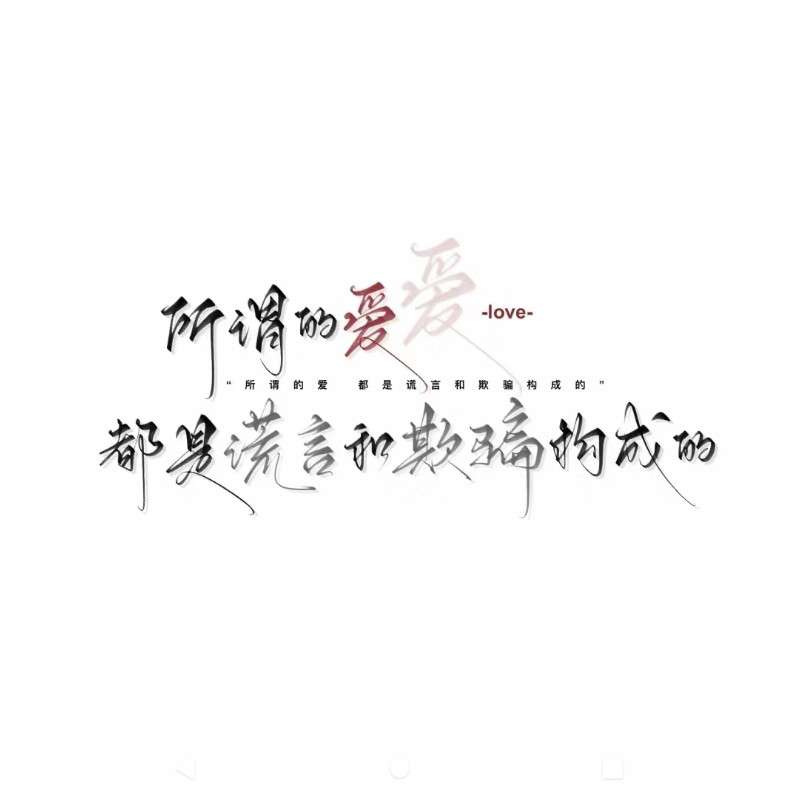 所谓的爱爱 -love-
“所谓的爱 都是谎言和欺骗构成的”
都是谎言和欺骗构成的